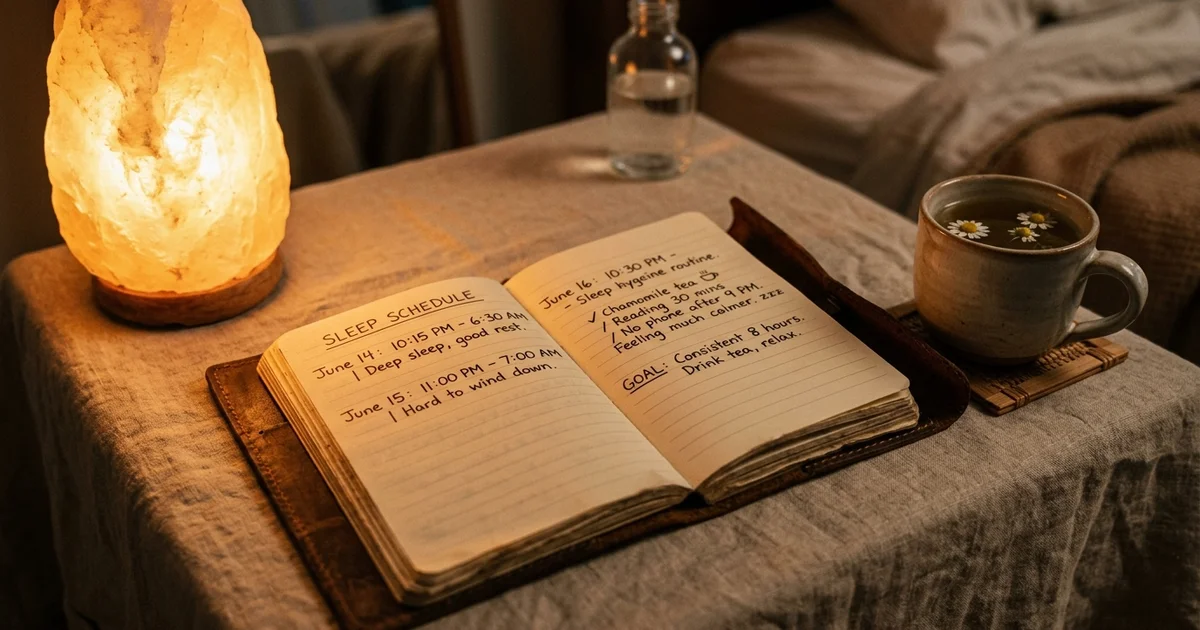 SLEEP SCHEDULE
June 14: 10:15 PM - 6:30 AM
| Deep sleep, good rest.
June 15: 11:00 PM - 7:00 AM
| Hard to wind down.
June 16: 10:30 PM -
- Sleep hygeine routine.
✓ Chamomile tea
/ Reading 30 mins
/ No phone after 9 PM.
Feeling much calmer. zzz
GOAL: Consistent 8 hours.
Drink tea, relax.